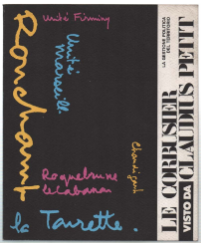 Unité Firminy
Ronchamp
Unité
Marseille
Chandigarh
Roquebrune
le Cabanon
la Tourette.
LE CORBUSIER
VISTO DA CLAUDIUS PETIT
LA GESTIONE POLITICA
DEL TERRITORIO